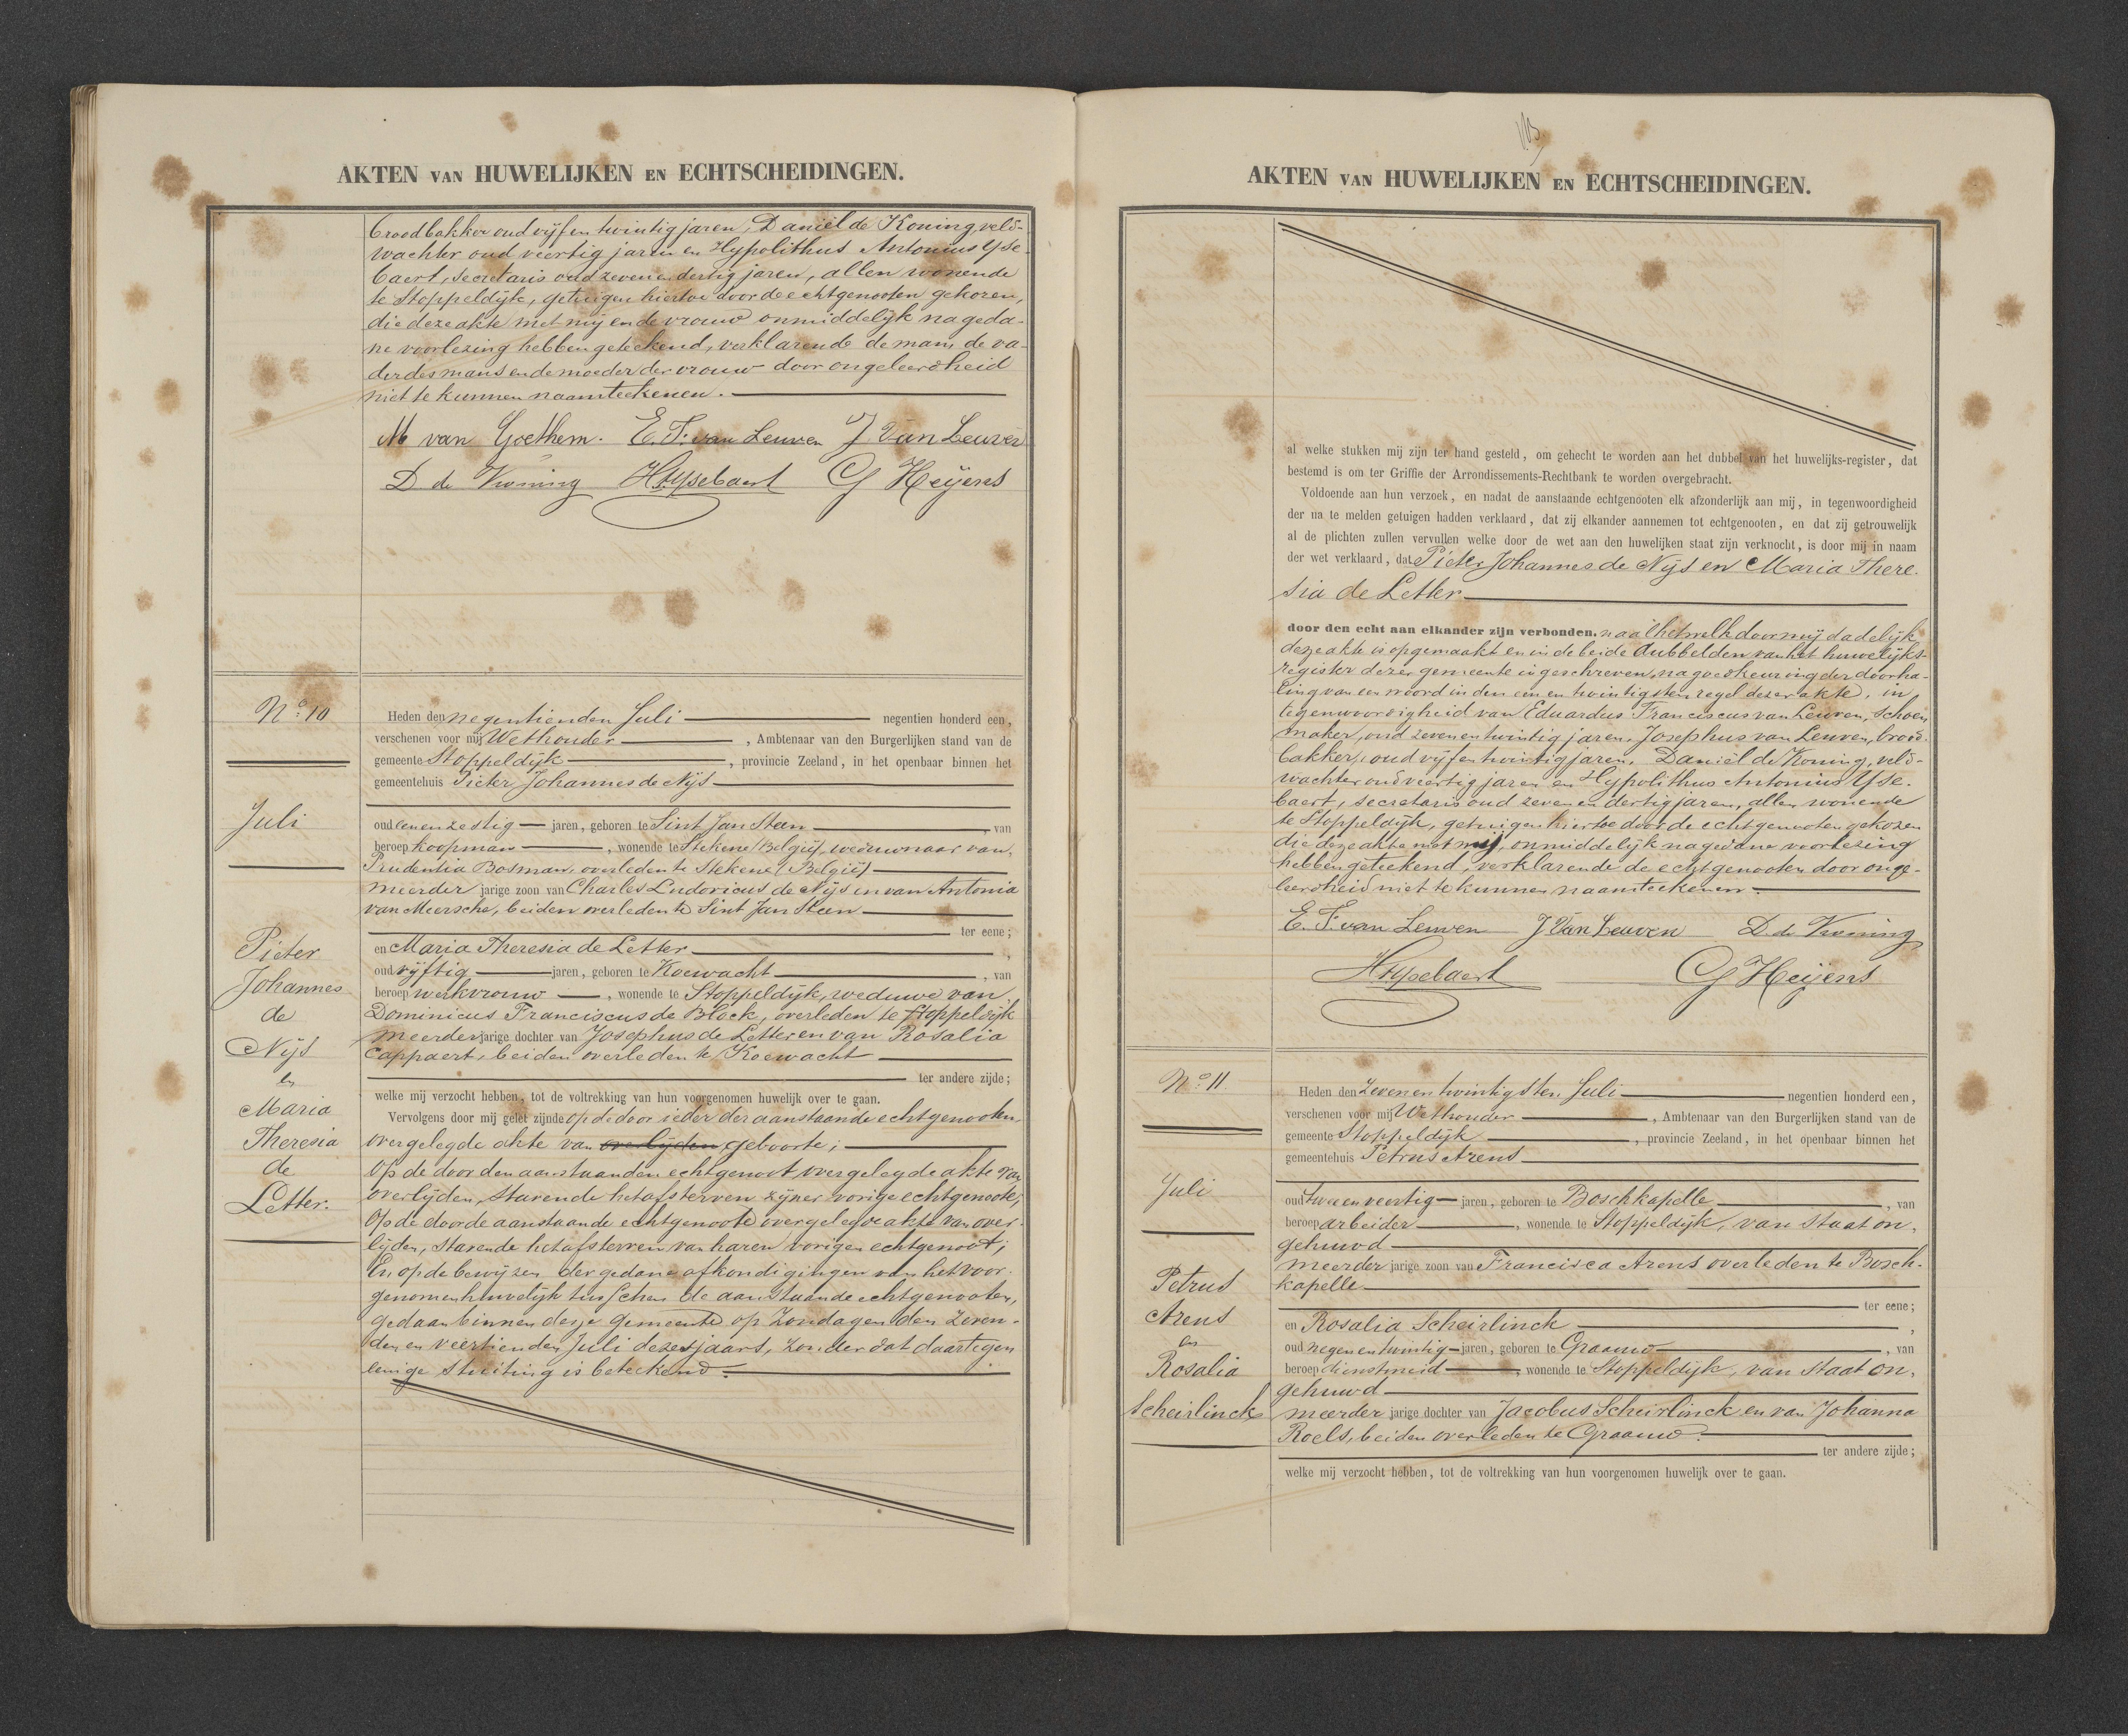 AKTEN VAN HUWELIJKEN EN ECHTSCHEIDINGEN.
broodbakker oud vijf en twintig jaren, Daniël de Koning, veld-
wachter oud veertig jaren en Hypolithus Antonius Yse-
baert, secretaris oud zeven en dertig jaren, allen wonende
te Stoppeldijk, getuigen hiertoe door de echtgenooten gekozen,
die deze akte met mij en de vrouw onmiddelijk na geda-
ne voorlezing hebben geteekend, verklarende de man, de va-
der des mans en de moeder der vrouw door ongeleerdheid
niet te kunnen naamteekenen.
M van Goethem. E. F. van Leuven J. Van Leuven
D de Koning HAYsebaert CJ Heijens
No. 10
Juli
Pieter
Johannes
de
Nijs
en
Maria
Theresia
de
Letter.
Heden den negentienden Juli negentien honderd een,
verschenen voor mij Wethouder, Ambtenaar van den Burgerlijken stand van de
gemeente Stoppeldijk, provincie Zeeland, in het openbaar binnen het
gemeentehuis Pieter Johannes de Nijs
oud een en zestig jaren, geboren te Sint Jan Steen, van
beroep koopman, wonende te Stekene (België), weduwnaar van
Prudentia Bosman, overleden te Stekene (België)
meerder jarige zoon van Charles Ludovicus de Nijs en van Antonia
van Meersche, beiden overleden te Sint Jan Steen
ter eene;
en Maria Theresia de Letter,
oud vijftig jaren, geboren te Koewacht, van
beroep werkvrouw, wonende te Stoppeldijk, weduwe van
Dominicus Franciscus de Block, overleden te Stoppeldijk
meerderjarige dochter van Josephus de Letter en van Rosalia
Cappaert, beiden overleden te Koewacht
ter andere zijde;
welke mij verzocht hebben, tot de voltrekking van hun voorgenomen huwelijk over te gaan.
Vervolgens door mij gelet zijnde op de door ieder der aanstaande echtgenooten
overgelegde akte van overlijden geboorte;
Op de door den aanstaanden echtgenoot overgelegde akte van
overlijden, stavende het afsterven zijner vorige echtgenoote;
Op de door de aanstaande echtgenoote overgelegde akte van over-
lijden, stavende het afsterven van haren vorigen echtgenoot;
En op de bewijzen der gedane afkondigingen van het voor-
genomen huwelijk tusschen de aanstaande echtgenooten,
gedaan binnen deze gemeente op Zondagen den zeven-
den en veertienden Juli dezes jaars, zonder dat daartegen
eenige stuiting is beteekend.
AKTEN VAN HUWELIJKEN EN ECHTSCHEIDINGEN.
al welke stukken mij zijn ter hand gesteld, om gehecht te worden aan het dubbel van het huwelijks-register, dat
bestemd is om ter Griffie der Arrondissements-Rechtbank te worden overgebracht.
Voldoende aan hun verzoek, en nadat de aanstaande echtgenooten elk afzonderlijk aan mij, in tegenwoordigheid
der na te melden getuigen hadden verklaard, dat zij elkander aannemen tot echtgenooten, en dat zij getrouwelijk
al de plichten zullen vervullen welke door de wet aan den huwelijken staat zijn verknocht, is door mij in naam
der wet verklaard, dat Pieter Johannes de Nijs en Maria There-
sia de Letter
door den echt aan elkander zijn verbonden. na al hetwelk door mij dadelijk
deze akte is opgemaakt en in de beide dubbelden van het huwelijks-
register dezer gemeente ingeschreven, na goedkeuring der doorha-
ling van een woord in den een en twintigsten regel dezer akte, in
tegenwoordigheid van Eduardus Franciscus van Leuven, schoen-
maker, oud zeven en twintig jaren, Josephus van Leuven, brood-
bakker, oud vijf en twintig jaren, Daniël de Koning, veld-
wachter oud veertig jaren en Hypolithus Antonius Yse-
baert, secretaris oud zeven en dertig jaren, allen wonende
te Stoppeldijk, getuigen hiertoe door de echtgenooten gekozen
die deze akte met mij, onmiddelijk na gedane voorlezing
hebben geteekend, verklarende de echtgenooten door onge-
leerdheid niet te kunnen naamteekenen.
E. F. van Leuven J Van Leuven D. de Koning
HAYsebaert CJ Heijens
No. 11
Juli
Petrus
Arens
en
Rosalia
Scheirlinck
Heden den zeven en twintigsten Juli negentien honderd een,
verschenen voor mij Wethouder, Ambtenaar van den Burgerlijken stand van de
gemeente Stoppeldijk, provincie Zeeland, in het openbaar binnen het
gemeentehuis Petrus Arens
oud twee en veertig jaren, geboren te Boschkapelle, van
beroep arbeider, wonende te Stoppeldijk, van staat on-
gehuwd
meerder jarige zoon van Francisca Arens overleden te Bosch-
kapelle
ter eene;
en Rosalia Scheirlinck,
oud negen en twintig jaren, geboren te Graauw, van
beroep dienstmeid, wonende te Stoppeldijk, van staat on-
gehuwd
meerder jarige dochter van Jacobus Scheirlinck en van Johanna
Roels, beiden overleden te Graauw.
ter andere zijde;
welke mij verzocht hebben, tot de voltrekking van hun voorgenomen huwelijk over te gaan.